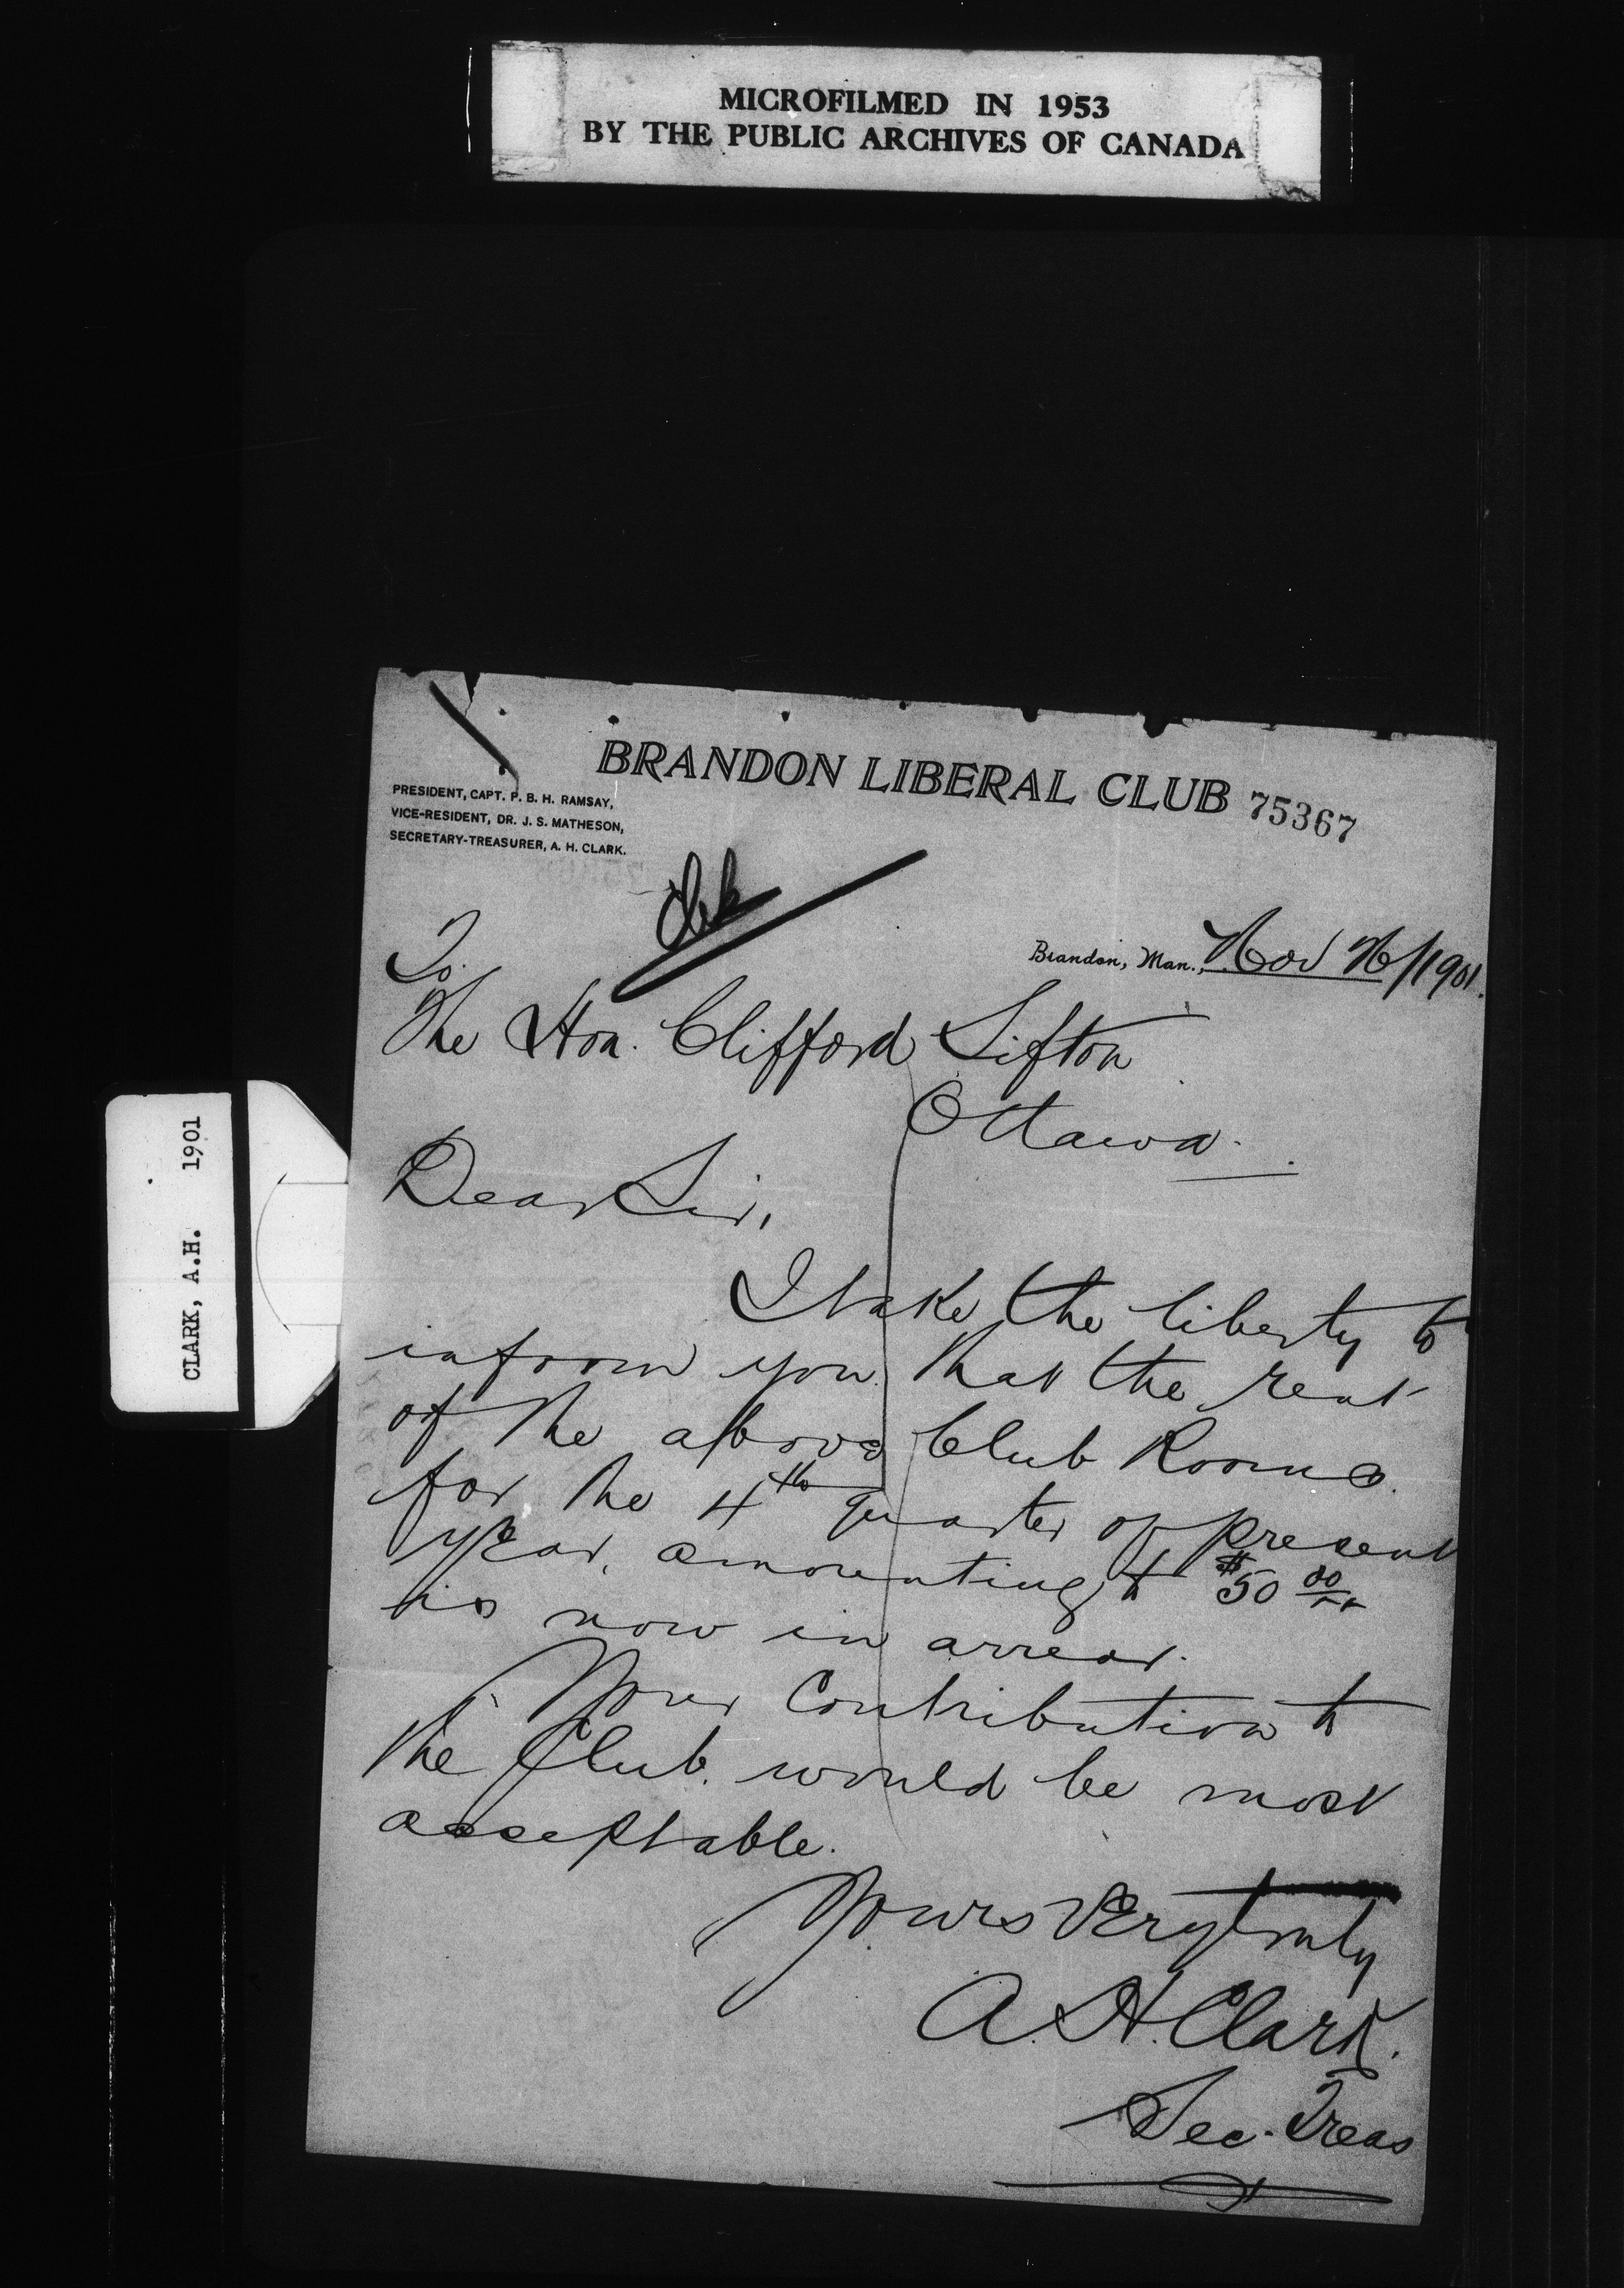 MICROFILMED IN 1953
BY THE PUBLIC ARCHIVES OF CANADA
CLARK, A.H. 1901
BRANDON LIBERAL CLUB 75367
PRESIDENT, CAPT. P. B. H. RAMSAY,
VICE-RESIDENT, DR. J. S. MATHESON,
SECRETARY-TREASURER, A. H. CLARK.
Brandon, Man., Nov 26/1901.
To.
The Hon. Clifford Sifton
Ottawa.
Dear Sir,
I take the liberty to
inform you that the rent
of the above Club Rooms.
for the 4th quarter of present
year, amounting to $50 00
is now in arrear.
Your Contribution to
the Club. would be most
acceptable.
Yours Very truly
A. H. Clark.
Sec. Treas